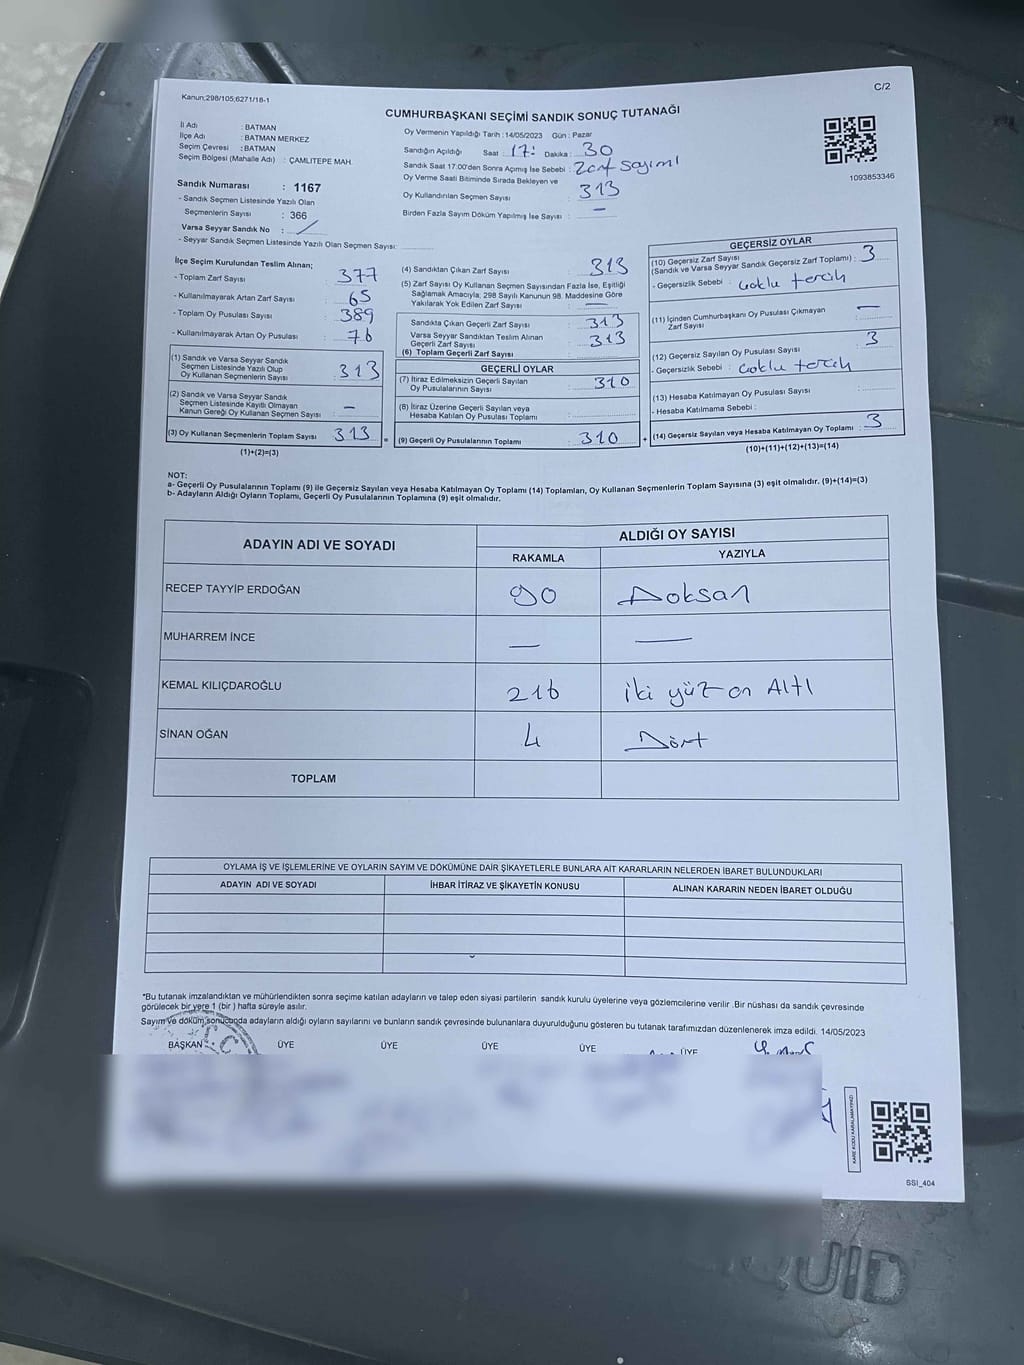 Kanun:298/105;6271/18-1
C/2
CUMHURBAŞKANI SEÇİMİ SANDIK SONUÇ TUTANAĞI
İl Adı : BATMAN
İlçe Adı : BATMAN MERKEZ
Seçim Çevresi : BATMAN
Seçim Bölgesi (Mahalle Adı) : ÇAMLITEPE MAH.
Sandık Numarası : 1167
- Sandık Seçmen Listesinde Yazılı Olan
Seçmenlerin Sayısı : 366
Varsa Seyyar Sandık No : /
- Seyyar Sandık Seçmen Listesinde Yazılı Olan Seçmen Sayısı:
Oy Vermenin Yapıldığı Tarih : 14/05/2023 Gün : Pazar
Sandığın Açıldığı Saat : 17: Dakika : 30
Sandık Saat 17.00'den Sonra Açımış İse Sebebi : Zarf sayımı
Oy Verme Saati Bitiminde Sırada Bekleyen ve
Oy Kullandırılan Seçmen Sayısı : 313
Birden Fazla Sayım Döküm Yapılmış İse Sayısı : —
1093853346
İlçe Seçim Kurulundan Teslim Alınan;
- Toplam Zarf Sayısı : 377
- Kullanılmayarak Artan Zarf Sayısı : 65
- Toplam Oy Pusulası Sayısı : 389
- Kullanılmayarak Artan Oy Pusulası : 76
(1) Sandık ve Varsa Seyyar Sandık
Seçmen Listesinde Yazılı Olup
Oy Kullanan Seçmenlerin Sayısı : 313
(2) Sandık ve Varsa Seyyar Sandık
Seçmen Listesinde Kayıtlı Olmayan
Kanun Gereği Oy Kullanan Seçmen Sayısı : —
(3) Oy Kullanan Seçmenlerin Toplam Sayısı : 313 =
(1)+(2)=(3)
(4) Sandıktan Çıkan Zarf Sayısı : 313
(5) Zarf Sayısı Oy Kullanan Seçmen Sayısından Fazla İse, Eşitliği
Sağlamak Amacıyla; 298 Sayılı Kanunun 98. Maddesine Göre
Yakılarak Yok Edilen Zarf Sayısı : —
Sandıkta Çıkan Geçerli Zarf Sayısı : 313
Varsa Seyyar Sandıktan Teslim Alınan
Geçerli Zarf Sayısı : 313
(6) Toplam Geçerli Zarf Sayısı :
GEÇERLİ OYLAR
(7) İtiraz Edilmeksizin Geçerli Sayılan
Oy Pusulalarının Sayısı : 310
(8) İtiraz Üzerine Geçerli Sayılan veya
Hesaba Katılan Oy Pusulası Toplamı :
(9) Geçerli Oy Pusulalarının Toplamı : 310 +
GEÇERSİZ OYLAR
(10) Geçersiz Zarf Sayısı
(Sandık ve Varsa Seyyar Sandık Geçersiz Zarf Toplamı) : 3
- Geçersizlik Sebebi : çoklu tercih
(11) İçinden Cumhurbaşkanı Oy Pusulası Çıkmayan
Zarf Sayısı : —
(12) Geçersiz Sayılan Oy Pusulası Sayısı : 3
- Geçersizlik Sebebi : çoklu tercih
(13) Hesaba Katılmayan Oy Pusulası Sayısı :
- Hesaba Katılmama Sebebi :
(14) Geçersiz Sayılan veya Hesaba Katılmayan Oy Toplamı : 3
(10)+(11)+(12)+(13)=(14)
NOT:
a- Geçerli Oy Pusulalarının Toplamı (9) ile Geçersiz Sayılan veya Hesaba Katılmayan Oy Toplamı (14) Toplamları, Oy Kullanan Seçmenlerin Toplam Sayısına (3) eşit olmalıdır. (9)+(14)=(3)
b- Adayların Aldığı Oyların Toplamı, Geçerli Oy Pusulalarının Toplamına (9) eşit olmalıdır.
ADAYIN ADI VE SOYADI ALDIĞI OY SAYISI
RAKAMLA YAZIYLA
RECEP TAYYİP ERDOĞAN 90 Doksan
MUHARREM İNCE — —
KEMAL KILIÇDAROĞLU 216 iki yüz on Altı
SİNAN OĞAN 4 Dört
TOPLAM
OYLAMA İŞ VE İŞLEMLERİNE VE OYLARIN SAYIM VE DÖKÜMÜNE DAİR ŞİKAYETLERLE BUNLARA AİT KARARLARIN NELERDEN İBARET BULUNDUKLARI
ADAYIN ADI VE SOYADI İHBAR İTİRAZ VE ŞİKAYETİN KONUSU ALINAN KARARIN NEDEN İBARET OLDUĞU
*Bu tutanak imzalandıktan ve mühürlendikten sonra seçime katılan adayların ve talep eden siyasi partilerin sandık kurulu üyelerine veya gözlemcilerine verilir .Bir nüshası da sandık çevresinde
görülecek bir yere 1 (bir ) hafta süreyle asılır.
Sayım ve döküm sonucunda adayların aldığı oyların sayılarını ve bunların sandık çevresinde bulunanlara duyurulduğunu gösteren bu tutanak tarafımızdan düzenlenerek imza edildi. 14/05/2023
BAŞKAN ÜYE ÜYE ÜYE ÜYE ÜYE
KARE KODU KARALAMAYINIZ!
SSİ_404
QUID